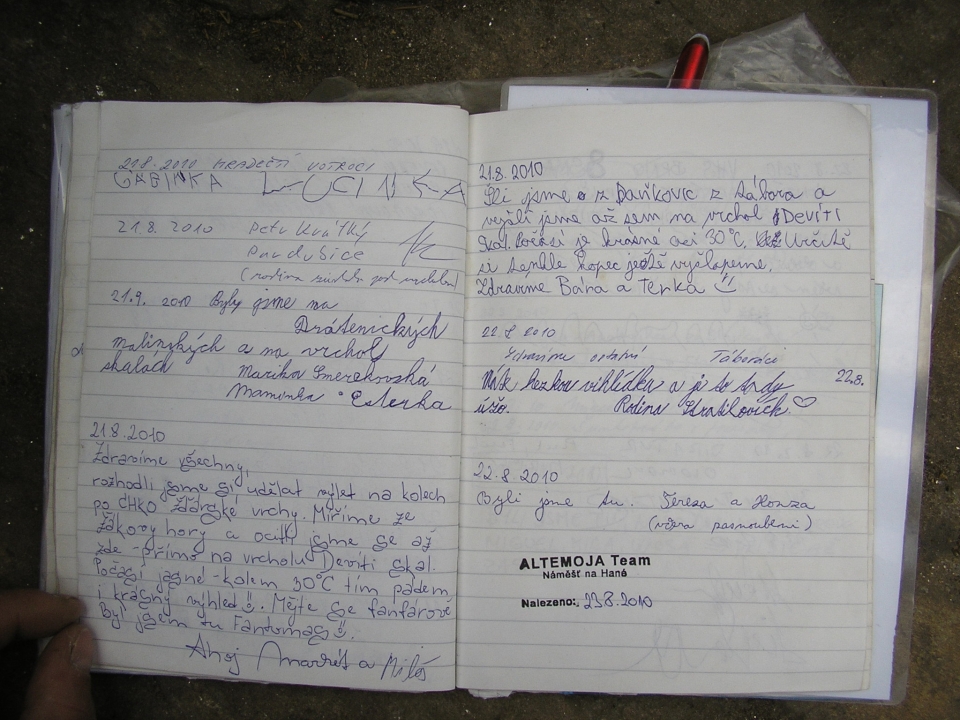 21.8.2010 HRADEČTÍ VOTROCI
GABINKA LUCINKA
21.8.2010 Petr Kvátký
Pardubice
(rodina
21.9. 2010 Byly jsme na
Drátenických
malinských a na vrchol
skalách Marika Smerekovská
Maminka Esterka
21.8.2010
Zdravíme všechny,
rozhodli jsme si udělat výlet na kolech
po CHKO Žďárské vrchy. Míříme ze
Žákovy hory a ocitli jsme se až
zde - přímo na vrcholu Devíti skal.
Počasí jasné - kolem 30°C tím pádem
i krásný výhled. Mějte se fanfárově
Byl jsem tu Fantomas.
Ahoj a Miloš
21.8.2010
Šli jsme z Daňkovic z tábora a
vyšli jsme až sem na vrchol Devíti
skal. Počasí je krásné asi 30°C. Určitě
si tenhle kopec ještě vyšlapeme.
Zdravíme Bára a Terka
22.8 2010
Zdravíme ostatní Táboráci
hezkou vihlídku a je to tady 22.8.
úžo. Rodina Stratilových
22.8 2010
Byli jsme tu. Tereza a Honza
(včera zasnoubeni)
ALTEMOJA Team
Náměšť na Hané
Nalezeno: 23.8.2010